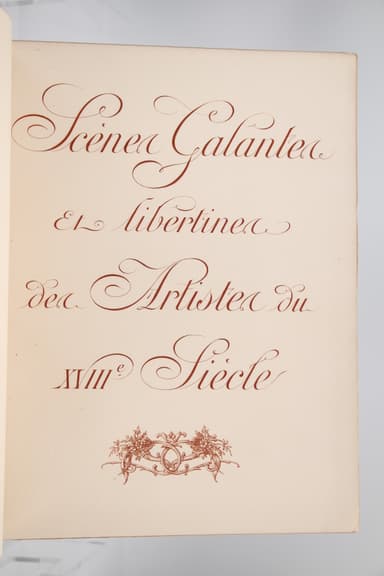 Scènes Galantes
Et libertines
des Artistes du
XVIIIe Siècle